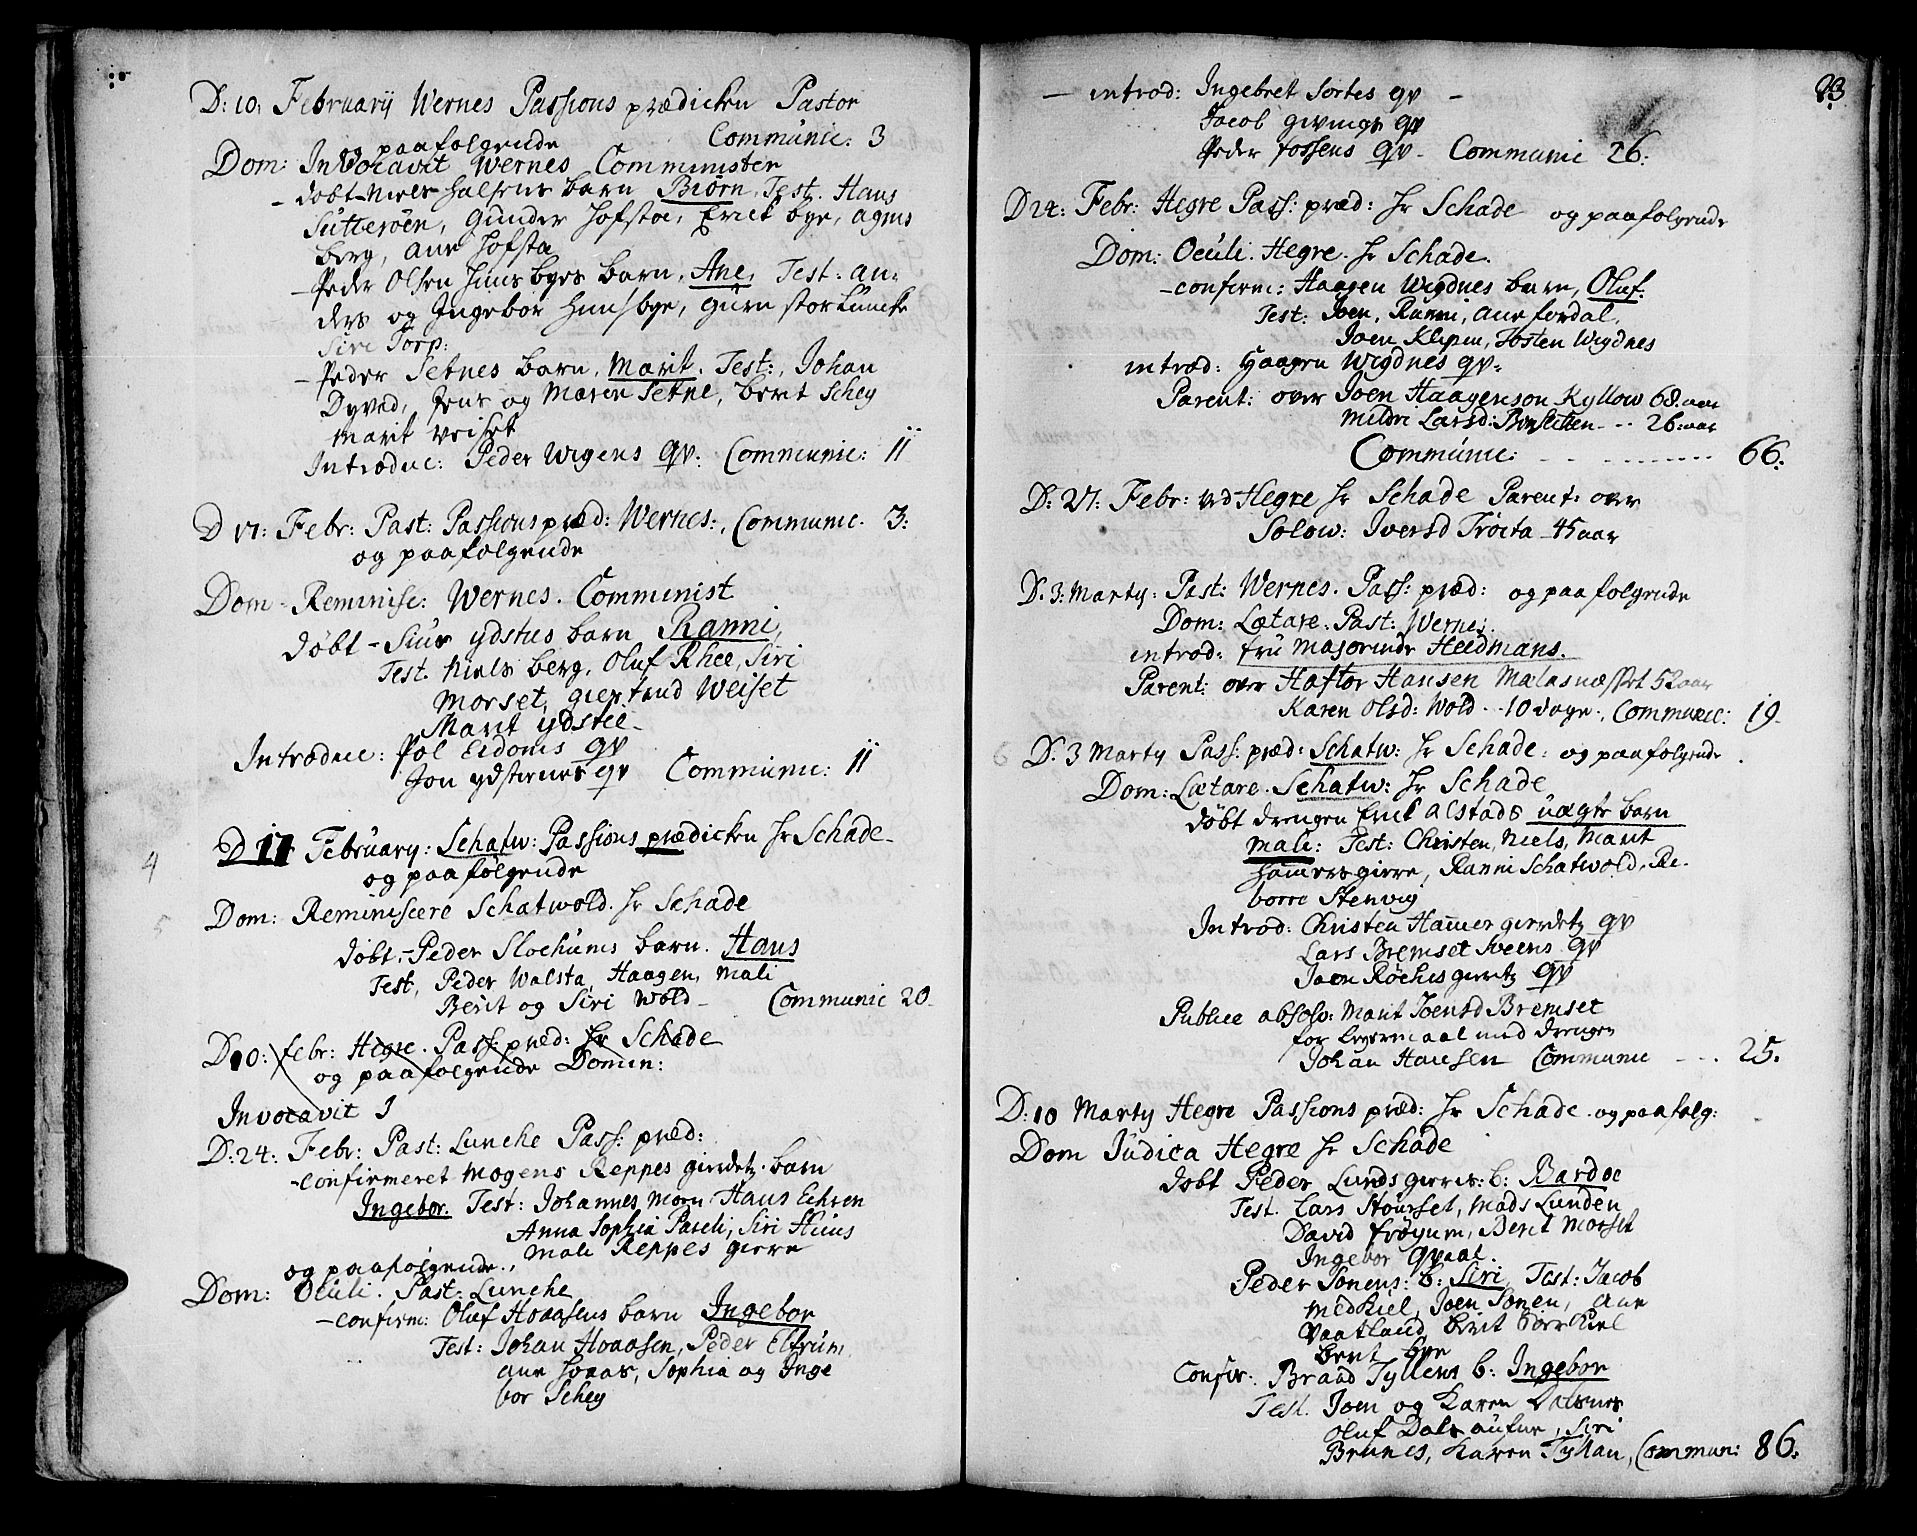 D: 10: Februarij Wernes Passions prædicken Pastor
og paafølgende Communic: 3
Dom: Invocavit Wernes Comminister
døbt - Niels Halsens barn Biørn, Test. Hans
Sutterøen, Gunder Hofsta, Erick bye, agnis
berg, ane Hofsta
- Peder Olsen Huusbyes barn, Ane, Test: an:
ders og Ingebor Huusbye, Guru storLuncke
Siri Torp:
- Peder Setnes barn, Marit. Test:, Johan
Dyved, Jens og Maren Setne, berit Schey
Marit
Introduc: Peder Wigens qv: Communic: 11
D 17: Febr: Past: Passions præd: Wernes:, Communic. 3:
og paafølgende
Dom - Reminisc: Wernes. Comminist
døbt - Siurs ydsties barn Ranni,
Test. Niels berg, Oluf Rhee, Siri
Morset, giertrud Weiset
Marit ydstie -
Introduc: Pol Eidoms qv
Jon ydstienes qv Communic: 11
4 D 17 February: Schatw: Passions prædicken Hr Schade -
og paafølgende
5 Dom: Reminiscere Schatwold. Hr Schade
døbt - Peder Slochums barn. Hans
Test, Peder Walsta, Haagen, Mali
Berit og Siri Wold - Communic 20.
D 10: febr: Hegre. Pass: præd: Hr Schade
og paafølgende Domin:
Invocavit
D: 24: Febr: Past: Lunche Pass: præd:
- confirmeret Mogens Reppes gierdetz barn
Ingebor. Test: Johannes Morn Hans Echren
Anna Sophia Pareli, Siri Huus
Mali Reppes gierre
og paafølgende.,
Dom: Oculi. Past: Lunche
- confirm: Oluf Hoaasens barn Ingebor
Test: Johan Hoaasen, Peder Elfrum
ane Hoaas, Sophia og Inge
bor Schey
23
- introd: Ingebret Sortes qv -
Jacob givings qv
Peder fossens qv - Communic 26:
D 24: Febr: Hegre Pass: præd: Hr Schade og paafølgende
Dom: Oculi. Hegre. Hr Schade.
- confirm: Haagen Wigdnes barn, Oluf.
Test: Joen, Ranni, ane fordal,
Joen Klepen, Tosten Wigdnes
introd: Haagen Wigdnes qv:
Parent: over Joen Haagenson Kyllow 68: aar
Mildri Larsd: -- 26: aar
Communic: 66:
D: 27: Febr: ved Hegre Hr Schade Parent: over
Solow: Iversd Trøita - 45 aar
D. 3: Marty: Past: Wernes. Pass: præd: og paafølgende
Dom: Lætare. Past: Wernes.
introd: fru Majorinde Heidmans.
Parent: over Haftor Hansen 52 aar
Karen Olsd: Wold -- 10 dage., Communic: 19.
6 D: 3 Marty Pass: præd: Schatw: Hr Schade: og paafølgende
Dom: Lætare. Schatw: Hr Schade
døbt drengen Erick Alstads uægte barn
Mali: Test: Christen, Niels, Marit
Hammersgierre, Ranni Schatwold, Re-
borre Stenvig
Introd: Christen Hammer gierdetz qv
Lars Bremset Sveens qv
Joen Røckisgierdetz qv
Publice absolv: Marit Joensd Bremset
for Leyermaal med drengen
Johan Hansen Communic --- 25.
D: 10 Marty Hegre Passions præd: Hr Schade. og paafølg:
Dom Judica Hegre Hr Schade
døbt Peder Lundsgierres: b: Bardoe
Test. Lars Stourset, Mads Lunden
David frøyum, Berit Morset
Ingebor qvaal.
Peder Sonens: b: Siri, Test: Jacob
Medkiel, Joen Sonen, ane
Vaatland berit Borrkiel
berit bye
Confir: Braad Tyllens b: Ingebor
Test. Joen og Karen
Oluf Dals aune, Siri
Brunes, Karen Tyllan, Commun: 86.